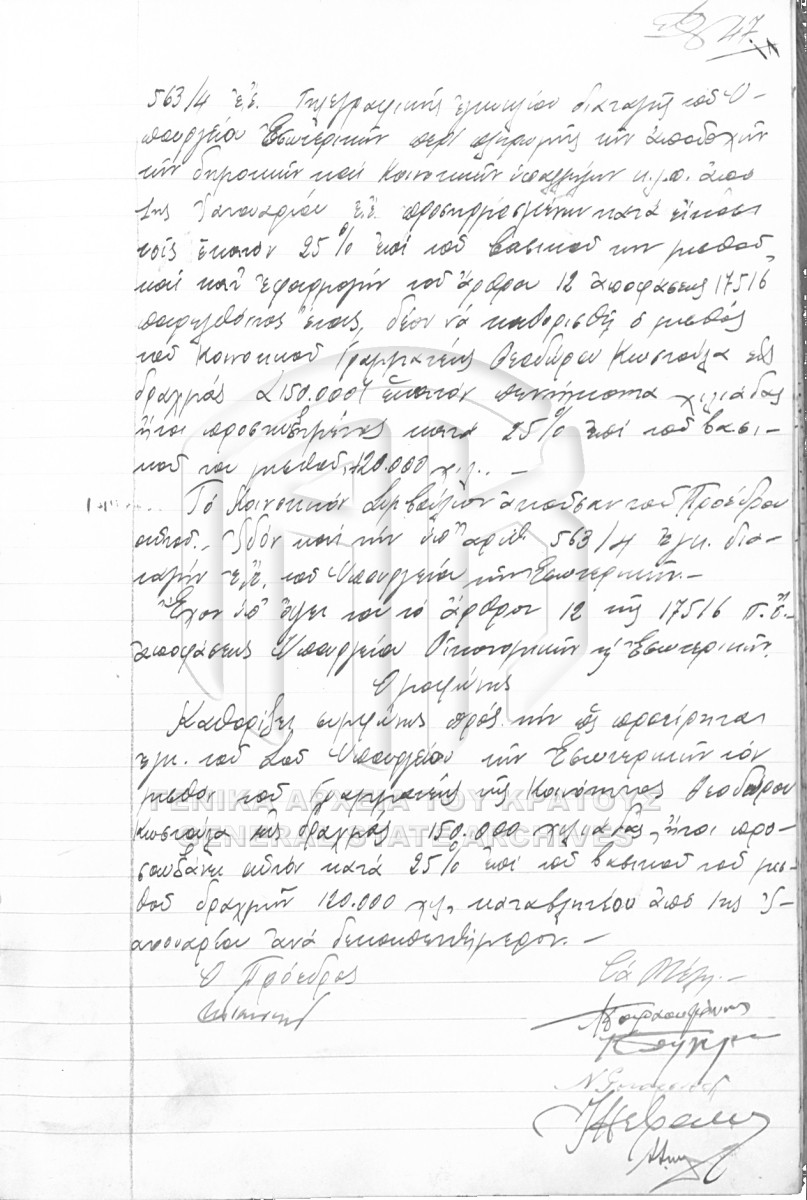 47
563/4 ἐ.ἔ. Τηλεγραφικῆς ἐγκυκλίου διαταγῆς τοῦ Ὑ-
πουργείου Ἐσωτερικῶν περί πληρωμῆς τῶν ἀποδοχῶν
τῶν δημοτικῶν καί Κοινοτικῶν ὑπαλλήλων κ.λ.π. ἀπό
1ης Ἰανουαρίου ἐ.ἔ. προσηυξημένων κατά εἴκοσι
τοῖς ἑκατόν 25% ἐπί τοῦ βασικοῦ των μισθοῦ
καί κατ' ἐφαρμογήν τοῦ ἄρθρου 12 ἀποφάσεως 17516
παρελθόντος ἔτους, δέον νά καθορισθῇ ὁ μισθός
τοῦ Κοινοτικοῦ Γραμματέως Θεοδώρου Κωστούλα εἰς
δραχμάς 150.000 ἑκατόν πεντήκοντα χιλιάδας
ἤτοι προσηυξημένος κατά 25% ἐπί τοῦ βασι-
κοῦ του μισθοῦ 120.000 χιλ. . –
Τό Κοινοτικόν Συμβούλιον ἀκοῦσαν τοῦ Προέδρου
αὐτοῦ. Ἰδόν καί τήν ὑπ' ἀριθ. 563/4 ἐγκ. δια-
ταγήν ἐ.ἔ. τοῦ Ὑπουργείου τῶν Ἐσωτερικῶν. –
Ἔχον ὑπ' ὄψει του τό ἄρθρον 12 τῆς 17516 π.ἔ.
ἀποφάσεως Ὑπουργείου Οἰκονομικῶν ἤ Ἐσωτερικῶν.
Ὁμοφώνως
Καθορίζει συμφώνως πρός τήν ὡς προείρηται
ἐγκ. τοῦ Σοῦ Ὑπουργείου τῶν Ἐσωτερικῶν τόν
μισθόν τοῦ Γραμματέως τῆς Κοινότητος Θεοδώρου
Κωστούλα εἰς δραχμάς 150.000 χιλιάδας, ἤτοι προ-
σαυξάνει αὐτόν κατά 25% ἐπί τοῦ βασικοῦ του μισ-
θοῦ δραχμῶν 120.000 χιλ, καταβλητέου ἀπό 1ης Ἰ-
ανουαρίου ἀνά δεκαπενθήμερον. –
Ὁ Πρόεδρος
Τά Μέλη. –
ΓΕΝΙΚΑ ΑΡΧΕΙΑ ΤΟΥ ΚΡΑΤΟΥΣ
GENERAL STATE ARCHIVES